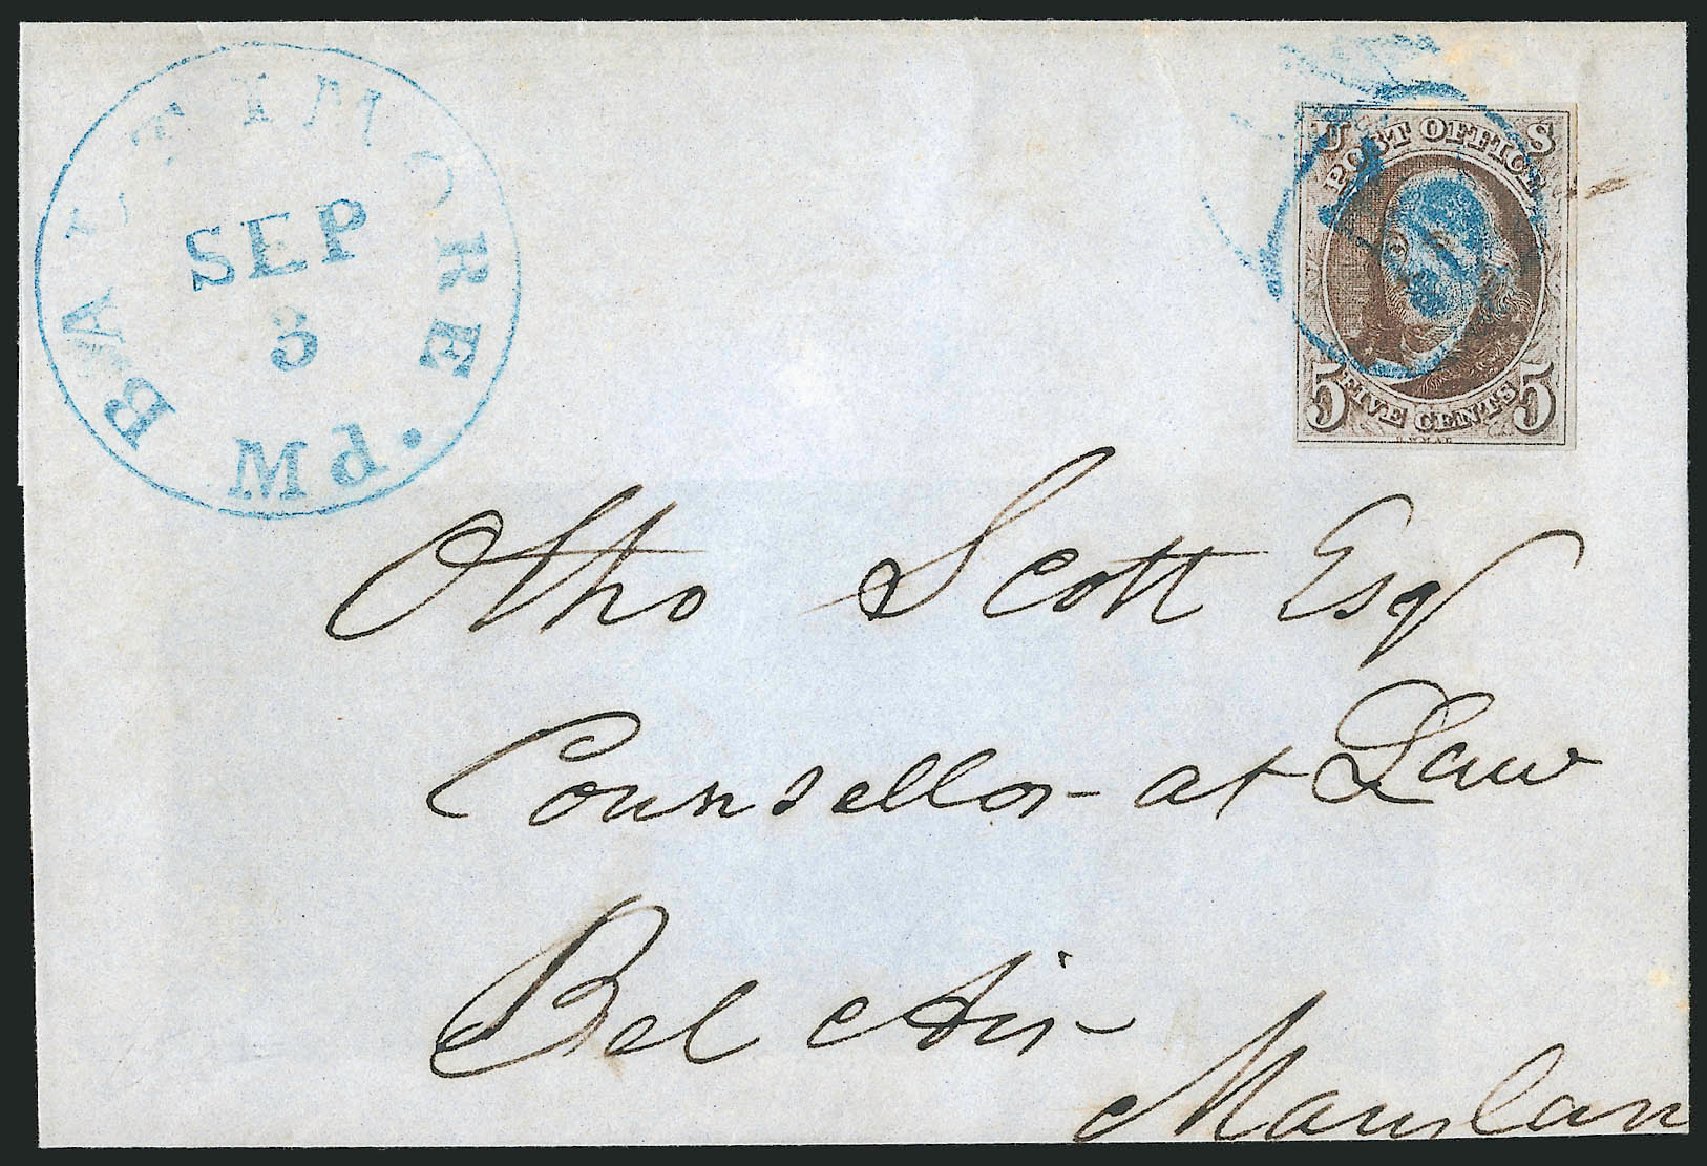 BALTIMORE
SEP
3
Md.
U S
POST OFFICE
5 FIVE CENTS 5
Otho Scott Esq
Counsellor at Law
Bel Air
Marylan